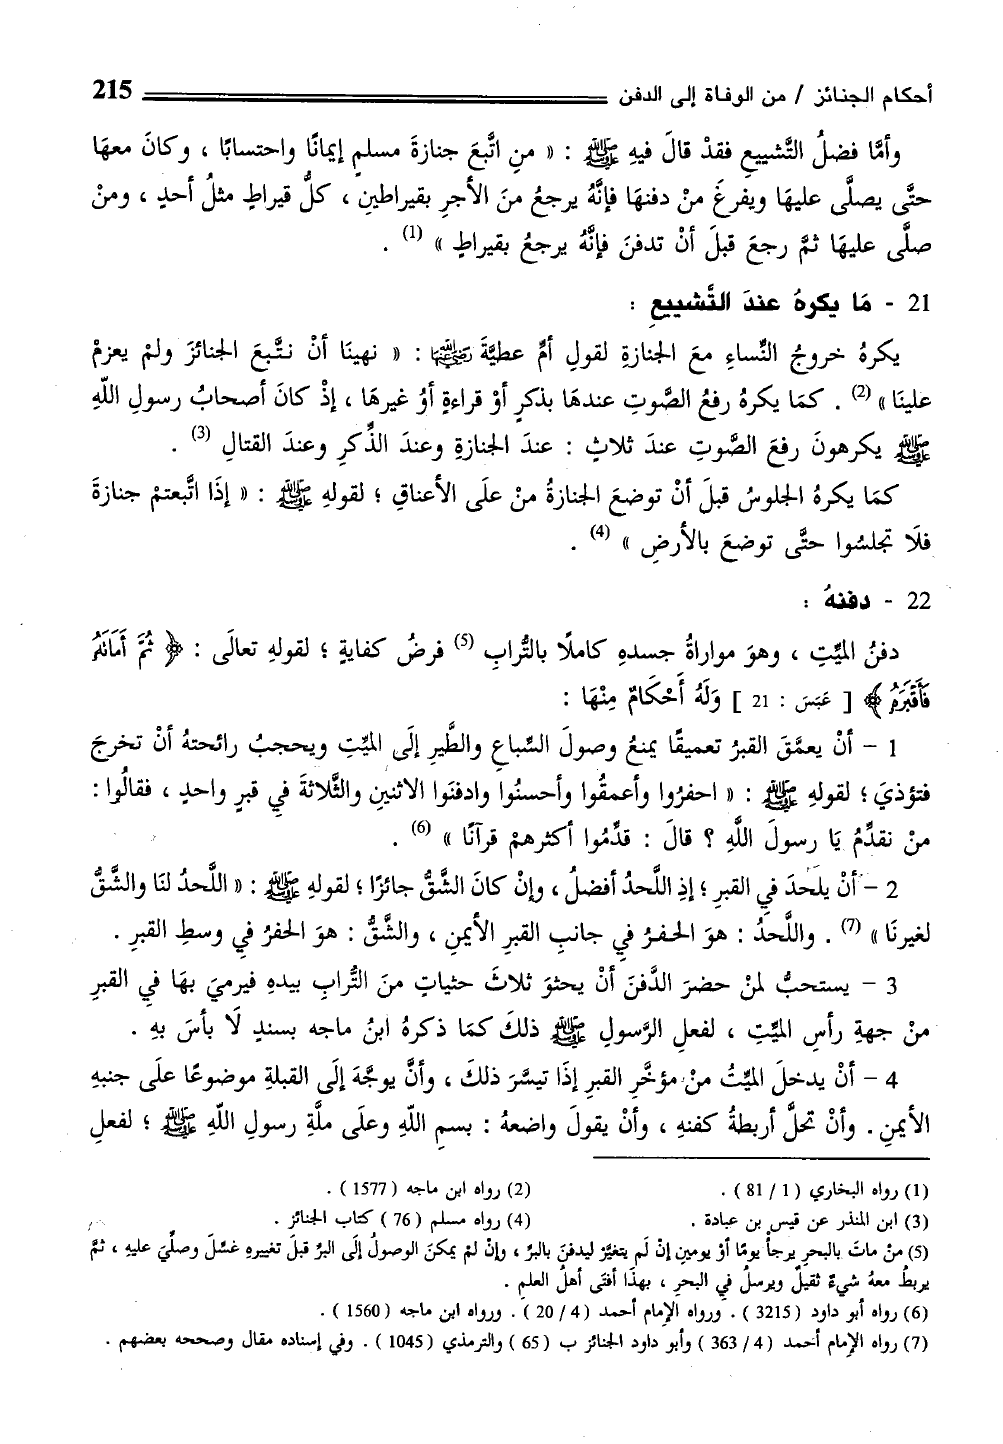 أحكام الجنائز / من الوفاة إلى الدفن 215
وأمَّا فضلُ التَّشييعِ فقدْ قالَ فيهِ ﷺ : « منِ اتَّبعَ جنازةَ مسلمٍ إيمانًا واحتسابًا ، وكانَ معهَا
حتَّى يصلَّى عليهَا ويفرغَ منْ دفنهَا فإنَّهُ يرجعُ منَ الأجرِ بقيراطينِ ، كلُّ قيراطٍ مثلُ أحدٍ ، ومنْ
صلَّى عليهَا ثمَّ رجعَ قبلَ أنْ تدفنَ فإنَّهُ يرجعُ بقيراطٍ » (1) .
21 - مَا يكرهُ عندَ التَّشييعِ :
يكرهُ خروجُ النِّساءِ معَ الجنازةِ لقولِ أمِّ عطيَّةَ رضي الله عنها : « نهينَا أنْ نتَّبعَ الجنائزَ ولمْ يعزمْ
علينَا » (2) . كمَا يكرهُ رفعُ الصَّوتِ عندهَا بذكرٍ أوْ قراءةٍ أوْ غيرهَا ، إذْ كانَ أصحابُ رسولِ اللَّهِ
ﷺ يكرهونَ رفعَ الصَّوتِ عندَ ثلاثٍ : عندَ الجنازةِ وعندَ الذِّكرِ وعندَ القتالِ (3) .
كمَا يكرهُ الجلوسُ قبلَ أنْ توضعَ الجنازةُ منْ علَى الأعناقِ ؛ لقولهِ ﷺ : « إذَا اتَّبعتمْ جنازةً
فلَا تجلسُوا حتَّى توضعَ بالأرضِ » (4) .
22 - دفنهُ :
دفنُ الميِّتِ ، وهوَ مواراةُ جسدهِ كاملًا بالتُّرابِ (5) فرضُ كفايةٍ ؛ لقولهِ تعالَى : ﴿ ثُمَّ أَمَاتَهُ
فَأَقْبَرَهُ ﴾ [ عَبَسَ : 21 ] وَلَهُ أَحْكَامٌ مِنْهَا :
1 - أنْ يعمَّقَ القبرُ تعميقًا يمنعُ وصولَ السِّباعِ والطَّيرِ إلَى الميِّتِ ويحجبُ رائحتهُ أنْ تخرجَ
فتؤذيَ ؛ لقولهِ ﷺ : « احفرُوا وأعمقُوا وأحسنُوا وادفنَوا الاثنينِ والثَّلاثةَ فِي قبرٍ واحدٍ ، فقالُوا :
منْ نقدِّمُ يَا رسولَ اللَّهِ ؟ قالَ : قدِّمُوا أكثرهمْ قرآنًا » (6) .
2 - أنْ يلحَدَ فِي القبرِ ؛ إذِ اللَّحدُ أفضلُ ، وإنْ كانَ الشَّقُّ جائزًا ؛ لقولهِ ﷺ : « اللَّحدُ لنَا والشَّقُّ
لغيرنَا » (7) . واللَّحدُ : هوَ الحفرُ فِي جانبِ القبرِ الأيمنِ ، والشَّقُّ : هوَ الحفرُ فِي وسطِ القبرِ .
3 - يستحبُّ لمنْ حضرَ الدَّفنَ أنْ يحثوَ ثلاثَ حثياتٍ منَ التُّرابِ بيدهِ فيرميَ بهَا فِي القبرِ
منْ جهةِ رأسِ الميِّتِ ، لفعلِ الرَّسولِ ﷺ ذلكَ كمَا ذكرهُ ابنُ ماجه بسندٍ لَا بأسَ بهِ .
4 - أنْ يدخلَ الميِّتُ منْ مؤخَّرِ القبرِ إذَا تيسَّرَ ذلكَ ، وأنَّ يوجَّهَ إلَى القبلةِ موضوعًا علَى جنبهِ
الأيمنِ . وأنْ تحلَّ أربطةُ كفنهِ ، وأنْ يقولَ واضعهُ : بسمِ اللَّهِ وعلَى ملَّةِ رسولِ اللَّهِ ﷺ ؛ لفعلِ
(1) رواه البخاري ( 1 / 81 ) . (2) رواه ابن ماجه ( 1577 ) .
(3) ابن المنذر عن قيس بن عبادة . (4) رواه مسلم ( 76 ) كتاب الجنائز .
(5) منْ ماتَ بالبحرِ يرجأُ يومًا أوْ يومينِ إنْ لَم يتغيَّرْ ليدفنَ بالبرِّ ، وإنْ لمْ يمكنَ الوصولُ إلَى البرِّ قبلَ تغييرهِ غسِّلَ وصلِّيَ عليهِ ، ثمَّ
يربطُ معهُ شيءٌ ثقيلٌ ويرسلُ فِي البحرِ ، بهذَا أفتَى أهلُ العلمِ .
(6) رواه أبو داود ( 3215 ) . ورواه الإمام أحمد ( 4 / 20 ) . ورواه ابن ماجه ( 1560 ) .
(7) رواه الإمام أحمد ( 4 / 363 ) وأبو داود الجنائز ب ( 65 ) والترمذي ( 1045 ) . وفي إسناده مقال وصححه بعضهم .